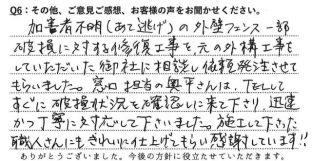 Q6：その他、ご意見ご感想、お客様の声をお聞かせください。
加害者不明（あて逃げ）の外壁フェンス一部
破損に対する修復工事を元の外構工事を
していただいた御社に相談し依頼発注させて
もらいました。窓口担当の奥平さんは、TELして
すぐに破損状況を確認しに来て下り 迅速
かつ丁寧に対応して下さいました。施工して下さった
職人さんにもきれいに仕上げてもらい感謝しています!!
ありがとうございました。今後の方針に役立たせていただきます。